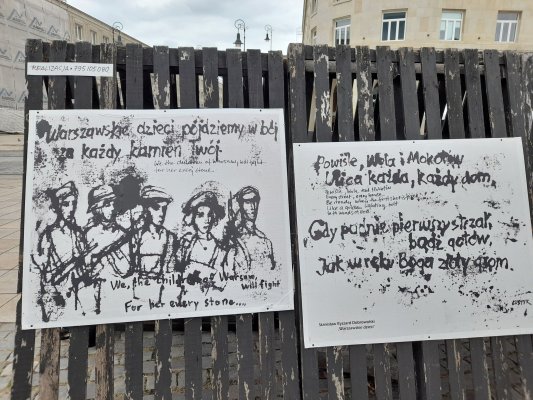 REALIZASJA + 795 105 080
Warszawskie dzieci pójdziemy w bój
za każdy kamień Twój
We, the children of Warsaw, will fight
for her every stone...
We, the children of Warsaw,
will fight
For her every stone....
Powiśle, Wola i Mokotów
Ulica każda, każdy dom,
Gdy padnie pierwszy strzał,
bądź gotów,
Jak w ręku Boga złoty grom.
Stanisław Ryszard Dobrowolski
"Warszawskie dzieci"